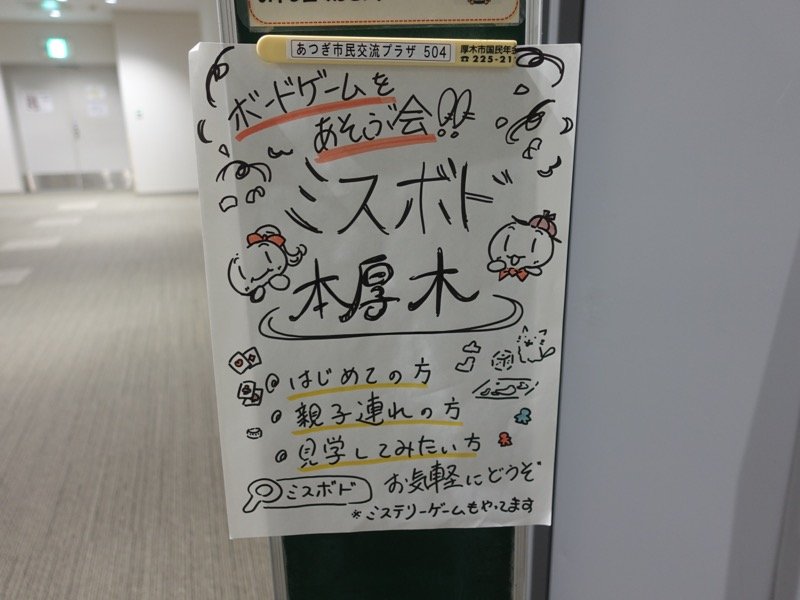 あつぎ市民交流プラザ 504
厚木市国民年金
☎225-211
ボードゲームを
あそぶ会!!
ミスボド
本厚木
はじめての方
親子連れの方
見学してみたい方
お気軽にどうぞ
ミスボド
*ミステリーゲームもやってます